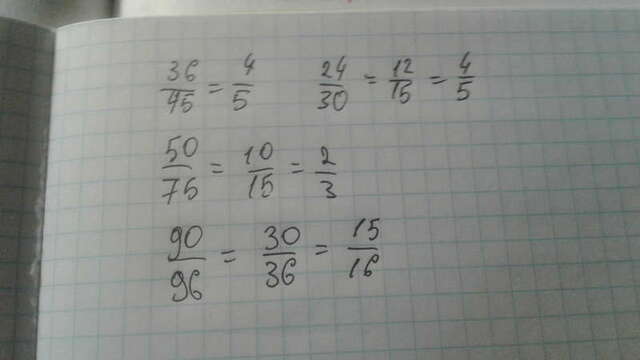 36/45 = 4/5 24/30 = 12/15 = 4/5
50/75 = 10/15 = 2/3
90/96 = 30/36 = 15/16